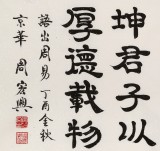 坤君子以
厚德載物
語出周易丁酉金秋
京華周宏興